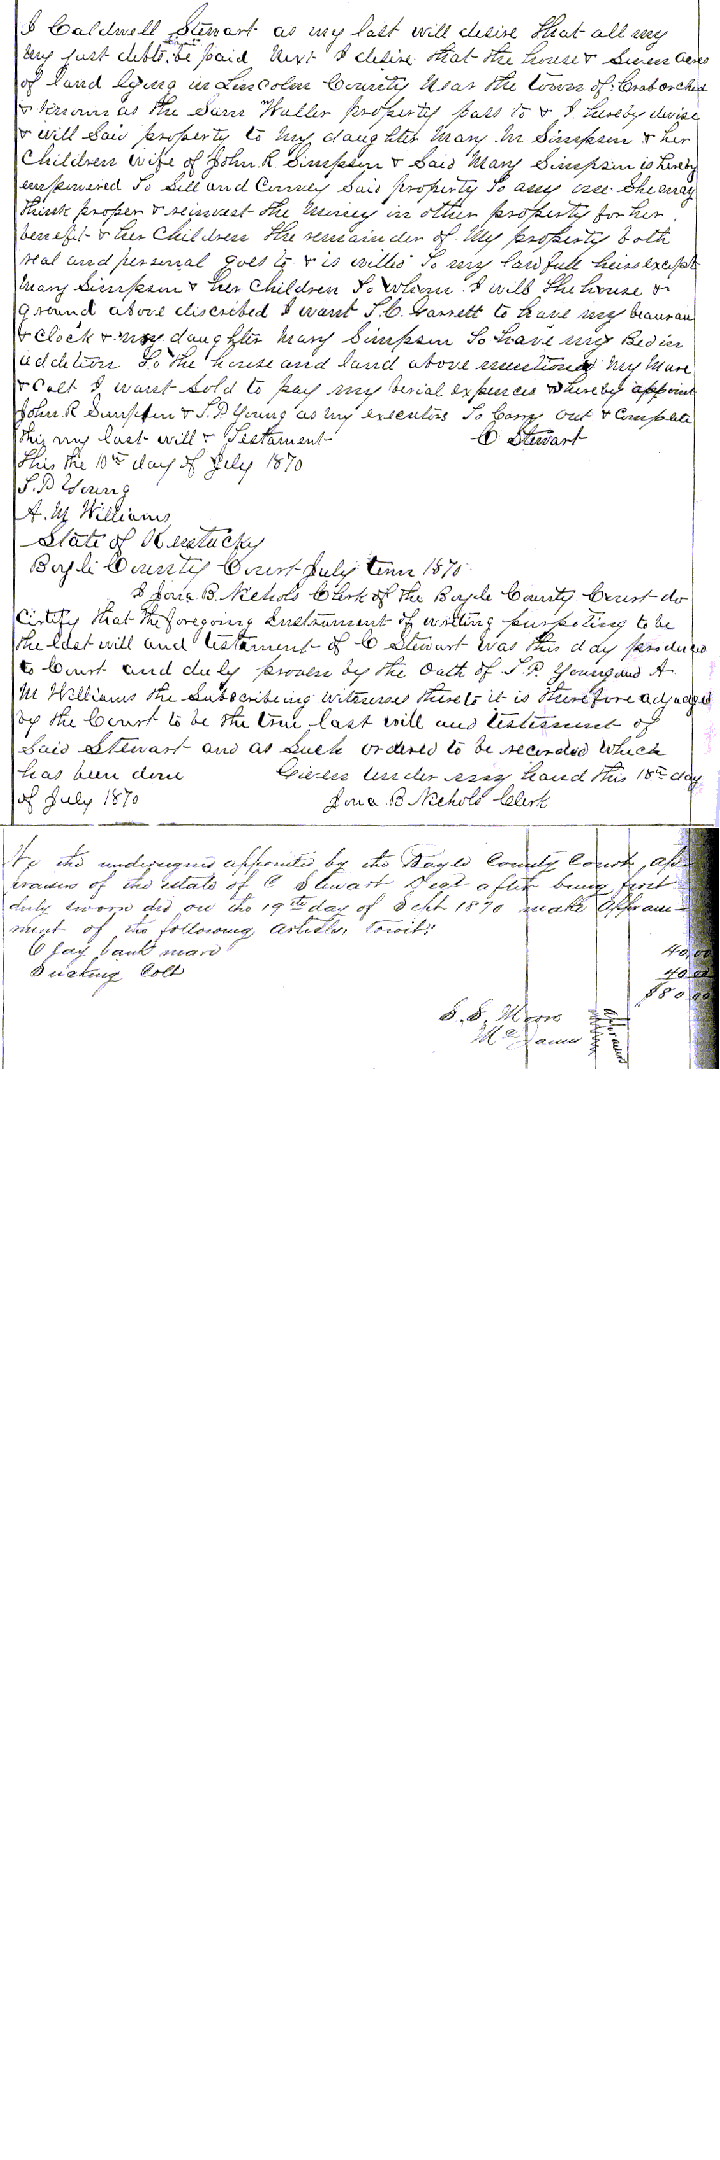 I Caldwell Stewart as my last will desire that all my
my just debts be paid next I desire that the house & Seven acres
of land lying in Lincoln County Near the town of Crab orchard
& known as the Sam Waller property pass to & I hereby devise
& will Said property to my daughter Mary M Simpson & her
Children wife of John R Simpson & Said Mary Simpson is hereby
empowered To Sell and Convey Said property To any one She may
think proper & reinvest the Money in other property for her
benefit & her Children the remainder of My property both
real and personal goes to & is willed To my lawfull heirs except
Mary Simpson & her Children To whom I will the house &
ground above discribed I want T. C. Garrett to have my beaurau
& Clock & my daughter Mary Simpson To have my Bed in
addition To the house and land above mentioned My Mare
& Colt I want Sold to pay my berial expences & hereby appoint
John R Simpson & S. D Young as my executors To Carry out & Complete
this my last will & Testament C Stewart
this the 10th day of July 1870
S. D Young
A. M Williams
State of Kentucky
Boyle County Court July term 1870
I Jona B. Nichols Clerk of the Boyle County Court do
Certify that the foregoing Instrument of writing purpoting to be
the last will and testament of C Stewart was this day produced
to Court and duly proven by the Oath of S. D. Young and A
M Williams the Subscribing witnesses thereto it is therefore adjudged
by the Court to be the true last will and testement of
Said Stewart and as Such ordered to be recorded Which
has been done Given under my hand this 18th day
of July 1870 Jona B Nichols Clerk
We the undersigned appointed by the Boyle County Court ap-
praisers of the estate of C Stewart Decd after being first
duly sworn did on the 19th day of Sept 1870 make appraise-
ment of the following articles, Towit:
Clay bank mare 40.00
Sucking Colt 40 00
$80 00
S. S. Moore
appraisers